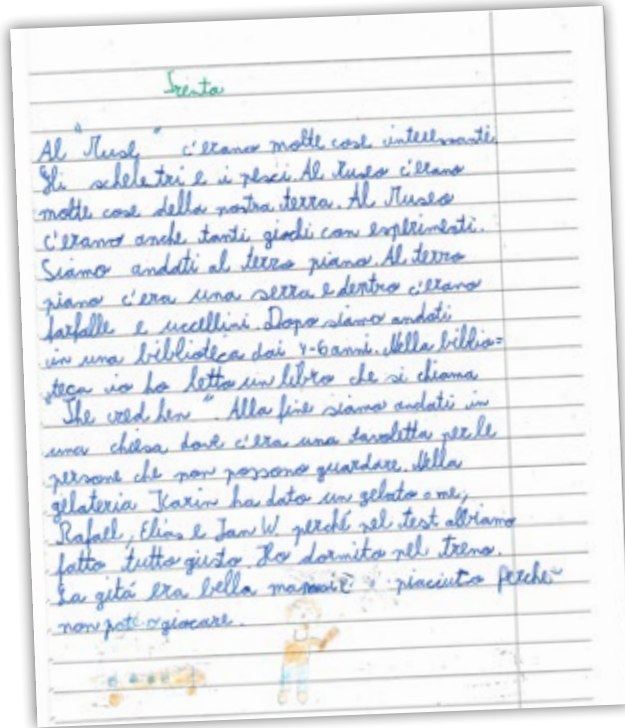 Trento
Al "Muse" c'erano molte cose interessanti.
Gli scheletri e i pesci. Al Museo c'erano
molte cose della nostra terra. Al Museo
c'erano anche tanti giochi con esperimenti.
Siamo andati al terzo piano. Al terzo
piano c'era una serra e dentro c'erano
farfalle e uccellini. Dopo siamo andati
in una biblioteca dai 4-6 anni. Nella biblio=
teca io ho letto un libro che si chiama
"The red hen". Alla fine siamo andati in
una chiesa dove c'era una tavoletta per le
persone che non possono guardare. Nella
gelateria Karin ha dato un gelato a me,
Rafael, Elias e Jan W. perché nel test abbiamo
fatto tutto giusto. Ho dormito nel treno.
La gitá era bella ma piaciuto perche
non giocare.